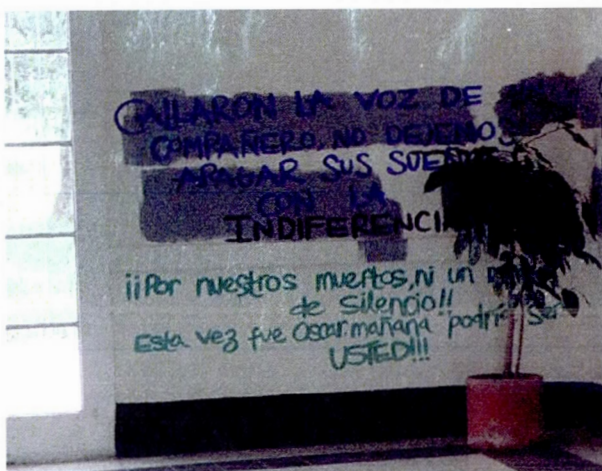 CALLARON LA VOZ DE
COMPAÑERO, NO DEJEMOS
APAGAR SUS
CON LA
INDIFERENCIA
¡¡Por nuestros muertos, ni un
de silencio!!
Esta vez fue Oscar. mañana podría ser
USTED!!!